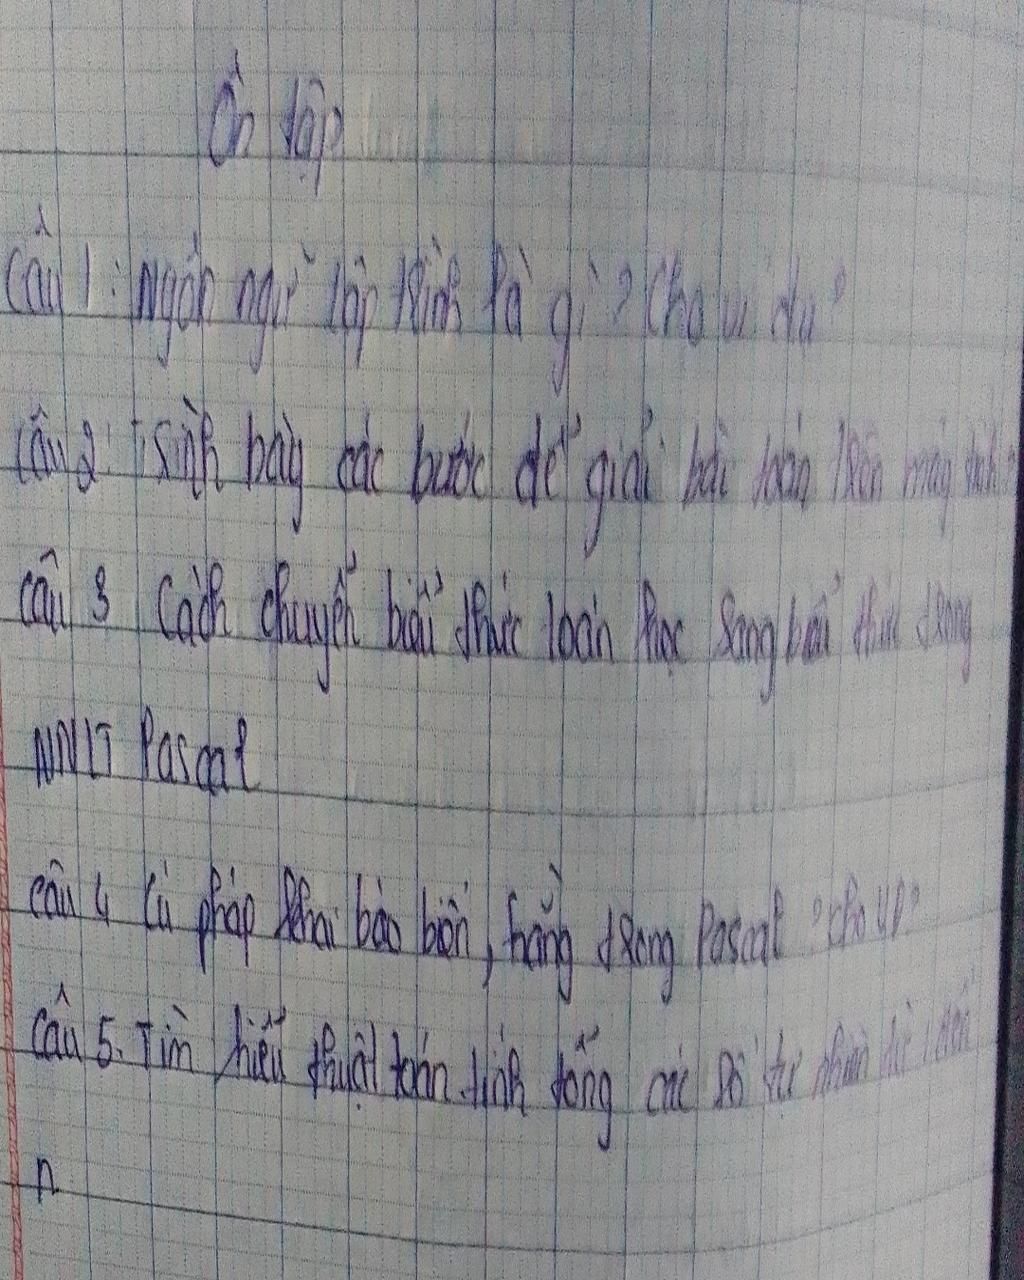 Ôn tập
Câu 1: Ngôn ngữ lập trình là gì? Cho ví dụ?
Câu 2: Trình bày các bước để giải bài toán trên máy tính?
Câu 3 Cách chuyển biểu thức toán học sang biểu thức trong
NNLT Pascal
Câu 4 Cú pháp khai báo biến, hằng trong Pascal? cho VD?
Câu 5. Tìm hiểu thuật toán tính tổng các số tự nhiên từ 1 đến
n